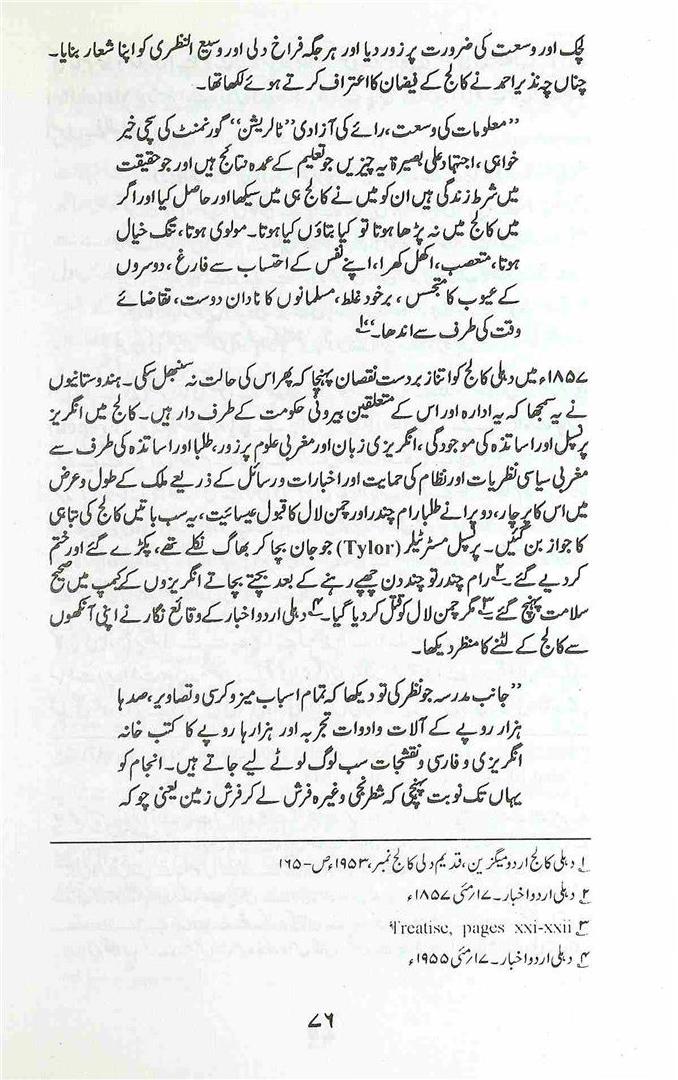 لچک اور وسعت کی ضرورت پر زور دیا اور ہر جگہ فراخ دلی اور وسیع النظری کو اپنا شعار بنایا۔
چناں چہ نذیر احمد نے کالج کے فیضان کا اعتراف کرتے ہوئے لکھا تھا۔
”معلومات کی وسعت، رائے کی آزادی ”ٹالریشن“ گورنمنٹ کی سچی خیر
خواہی، اجتہاد علی بصیرۃ یہ چیزیں جو تعلیم کے عمدہ نتائج ہیں اور جو حقیقت
میں شرط زندگی ہیں ان کو میں نے کالج ہی میں سیکھا اور حاصل کیا اور اگر
میں کالج میں نہ پڑھا ہوتا تو کیا بتاؤں کیا ہوتا۔ مولوی ہوتا، تنگ خیال
ہوتا، متعصب، اکھل کھرا، اپنے نفس کے احتساب سے فارغ، دوسروں
کے عیوب کا متجسس، برخود غلط، مسلمانوں کا نادان دوست، تقاضائے
وقت کی طرف سے اندھا۔“۱
۱۸۵۷ء میں دہلی کالج کو اتنا زبردست نقصان پہنچا کہ پھر اس کی حالت نہ سنبھل سکی۔ ہندوستانیوں
نے یہ سمجھا کہ یہ ادارہ اور اس کے متعلقین بیرونی حکومت کے طرف دار ہیں۔ کالج میں انگریز
پرنسپل اور اساتذہ کی موجودگی، انگریزی زبان اور مغربی علوم پر زور، طلبا اور اساتذہ کی طرف سے
مغربی سیاسی نظریات اور نظام کی حمایت اور اخبارات و رسائل کے ذریعے ملک کے طول و عرض
میں اس کا پرچار، دو پرانے طلبا رام چندر اور چمن لال کا قبول عیسائیت، یہ سب باتیں کالج کی تباہی
کا جواز بن گئیں۔ پرنسپل مسٹر ٹیلر (Tylor) جو جان بچا کر بھاگ نکلے تھے، پکڑے گئے اور ختم
کر دیے گئے۔۲ رام چندر تو چند دن چھپے رہنے کے بعد بچتے بچاتے انگریزوں کے کیمپ میں صحیح
سلامت پہنچ گئے۳ مگر چمن لال کو قتل کر دیا گیا۔۴ دہلی اردو اخبار کے وقائع نگار نے اپنی آنکھوں
سے کالج کے لٹنے کا منظر دیکھا۔
”جانب مدرسہ جو نظر کی تو دیکھا کہ تمام اسباب میز و کرسی و تصاویر، صدہا
ہزار روپے کے آلات و ادوات تجربہ اور ہزارہا روپے کا کتب خانہ
انگریزی و فارسی و نقشجات سب لوگ لوٹے لیے جاتے ہیں۔ انجام کو
یہاں تک نوبت پہنچی کہ شطرنجی وغیرہ فرش لے کر فرش زمین یعنی چوکہ
۱ دہلی کالج اردو میگزین، قدیم دلی کالج نمبر، ۱۹۵۳ء ص-۱۶۵
۲ دہلی اردو اخبار۔ ۱۷؍مئی ۱۸۵۷ء
۳ Treatise, pages xxi-xxii
۴ دہلی اردو اخبار۔ ۱۷؍مئی ۱۹۵۵ء
۷۶